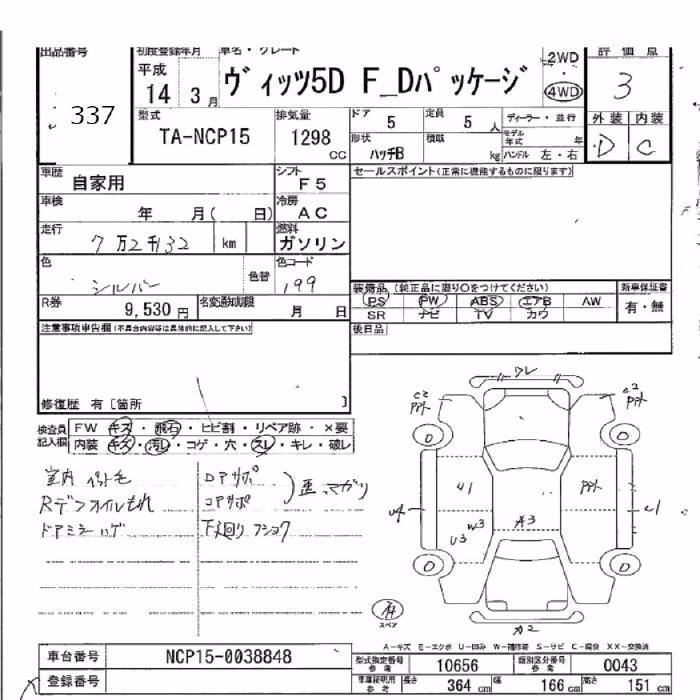 出品番号 初度登録年月 車名・グレード 評価点
337 平成 14 3月 ヴィッツ5D F_Dパッケージ 2WD ・ 4WD 3
型式 排気量 ドア 定員 ディーラー・並行 外装 内装
TA-NCP15 1298 CC 5 5人 モデル年式 年 D C
形状 積載
ハッチB kg ハンドル 左・右
車歴 自家用 シフト F5 セールスポイント(正常に機能するものに限ります)
車検 年 月( 日) 冷房 AC
走行 7万2千132 km 燃料 ガソリン
色 シルバー 色替 色コード 199
装備品 (純正品に限り○をつけてください) 新車保証書
PS PW ABS エアB AW 有・無
R券 9,530円 名変通知期限 月 日 SR ナビ TV カワ
注意事項車申告欄(不具合内容等は具体的に記入して下さい) 後日品
修復歴 有〔箇所 〕
検査員記入欄 FW キズ・飛石・ヒビ割・リペア跡・×要
内装 キズ・汚れ・コゲ・穴・スレ・キレ・破レ
室内 ペット毛 Dアサポ
Rデフオイルもれ コアサポ 歪 マガリ
ドアミラーハゲ 下廻り フショク
ワレ
U1
W3
U3
A3
U4
スペア
A2
A-キズ E-エクボ U-凹み W-補修跡 S-サビ C-腐食 XX-交換済
車台番号 NCP15-0038848 型式指定番号 参考 10656 類別区分番号 参考 0043
登録番号 車庫証明用 参考 長さ 364 cm 幅 166 cm 高さ 151 cm